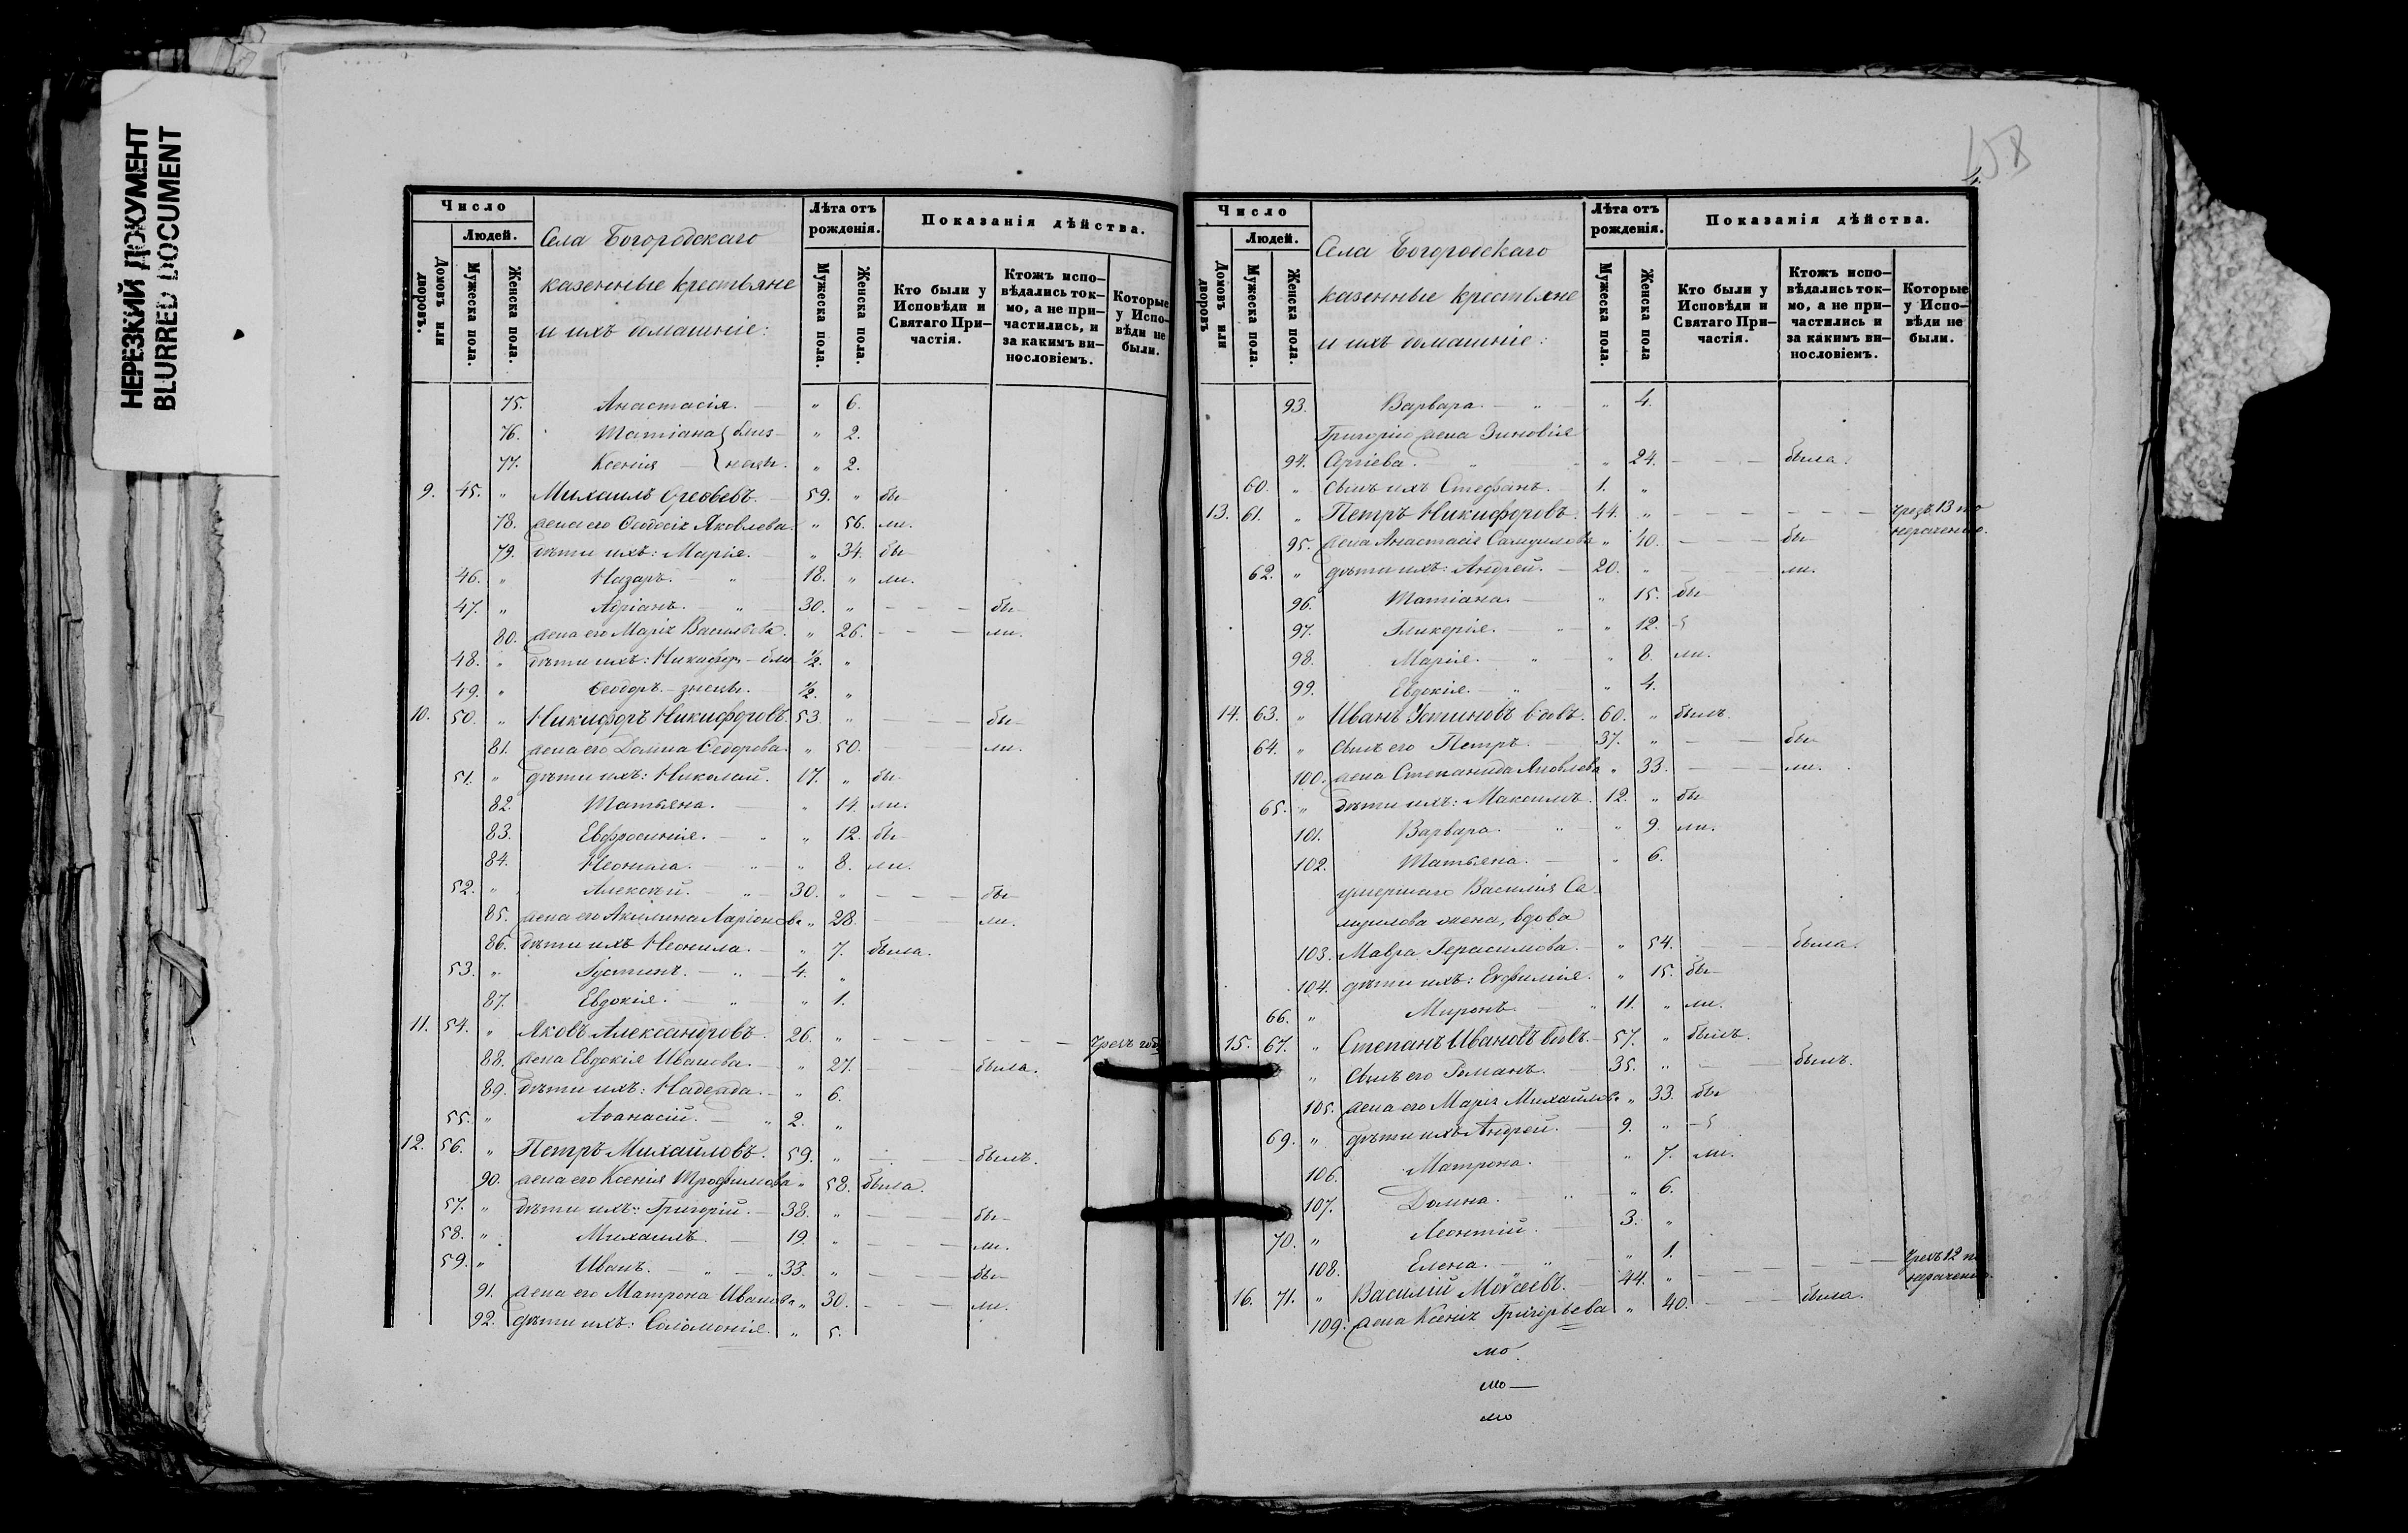 НЕРЕЗКИЙ ДОКУМЕНТ
BLURRED DOCUMENT
Число
Людей.
Домовъ или дворовъ.
Мужеска пола.
Женска пола.
Села Богородскаго
казенные крестьяне
и ихъ домашніе:
Лѣта отъ рожденія.
Мужеска пола.
Женска пола.
Показанія дѣйства.
Кто были у Исповѣди и Святаго При-
частія.
Ктожъ испо-
вѣдались ток-
мо, а не при-
частились, и
за какимъ ви-
нословіемъ.
Которые
у Испо-
вѣди не
были.
75. Анастасія. — „ 6.
76. Татіана близ- „ 2.
77. Ксенія — нецы. „ 2.
9. 45. „ Михаилъ 59. „ бы-
78. жена его Ѳеодосія Яковлева. „ 56. ли.
79. дѣти ихъ: Марія. — „ 34. бы-
46. „ Назаръ. „ 18. „ ли.
47. „ Адріанъ. — „ 30. „ — — — бы-
80. жена его Марія Васильева. „ 26. — — — ли.
48. „ дѣти ихъ: Никифор - бли ½. „
49. „ Ѳеодоръ. - знецы. ½. „
10. 50. „ Никифоръ Никифоровъ. 53. „ — — — бы-
81. жена его Домна Ѳедорова. „ 50. — — ли.
51. „ дѣти ихъ: Николай. 17. „ бы-
82. Татьяна. — „ 14. ли.
83. Евфросинія. — „ „ 12. бы-
84. Неонила. — „ „ 8. ли.
52. „ Алексѣй. — „ 30. „ — — — бы-
85. жена его Акилина Ларіонова „ 28. — — ли.
86. дѣти ихъ Неонила. — „ 7. была.
53. „ Іустинъ. — „ 4. „
87. Евдокія. — „ „ 1.
11. 54. „ Яковъ Александровъ. 26. „ — — — — — —
88. жена Евдокія Иванова. — „ 27. — — была.
89. дѣти ихъ: Надежда. — „ 6.
55. „ Аѳанасій. — „ 2. „
12. 56. „ Петръ Михайловъ. 59. „ — — былъ.
90. жена его Ксенія Трофимова „ 58. была.
57. „ дѣти ихъ: Григорій. — 38. „ — — — бы-
58. „ Михаилъ. — 19. „ — — — ли.
59. „ Иванъ. — „ — „ 33. „ — — — бы-
91. жена его Матрона Иванова „ 30. — — — ли.
92. дѣти ихъ: Соломонія. „ 5.
158
4.
Число
Людей.
Домовъ или дворовъ
Мужеска пола.
Женска пола.
Села Богородскаго
казенные крестьяне
и ихъ домашніе:
Лѣта отъ рожденія.
Мужеска пола.
Женска пола
Показанія дѣйства.
Кто были у
Исповѣди и
Святаго При-
частія.
Ктожъ испо-
вѣдались ток-
мо, а не при-
частились и
за какимъ ви-
нословіемъ.
Которые
у Испо-
вѣди не
были.
93. Варвара. — „ — „ 4.
Григорію жена Зиновія
94. „ 24. — — — была.
60. „ сынъ ихъ Стефанъ. — 1. „
13. 61. „ Петръ Никифоровъ. 44. „ — — — — — — чрезъ 13 по
нераченію.
95. жена Анастасія Самуилова „ 40. — — — бы-
62. „ дѣти ихъ: Андрей. — 20. „ — — ли.
96. Татіана. — „ 15. бы-
97. Гликерія. — „ — „ 12. -
98. Марія. — „ — „ 8. ли.
99. Евдокія. — „ — „ 4.
14. 63. „ Иванъ Устиновъ вдовъ. 60. „ былъ.
64. „ сынъ его Петръ. — 37. „ — — бы-
100. жена Степанида Яковлева „ 33. — — ли.
65. „ дѣти ихъ: Максимъ. 12. „ бы-
101. Варвара. — „ — „ 9. ли.
102. Татьяна. — „ 6.
умершаго Василія Са-
муилова жена, вдова
103. Мавра Герасимова. — „ 54. — — была.
104. дѣти ихъ: Евфимія. „ 15. бы-
66. „ Миронъ. — „ 11. „ ли.
15. 67. „ Степанъ Ивановъ вдовъ. — 57. „ былъ.
„ сынъ его Романъ. — 35. „ — — былъ.
105. жена его Марія Михайлова „ 33. бы-
69. „ дѣти ихъ Андрей. — 9. „ -
106. Матрона. — „ 7. ли.
107. Домна. — „ — „ 6.
70. „ Леонтій. — 3. „
108. Елена. — „ — „ 1.
16. 71. „ Василій Моѵсеевъ. — 44. „ — — — — — — чрезъ 12 по
нераченію.
109. жена Ксенія Григорьева „ 40. — — — была.
мо.
мо —
мо